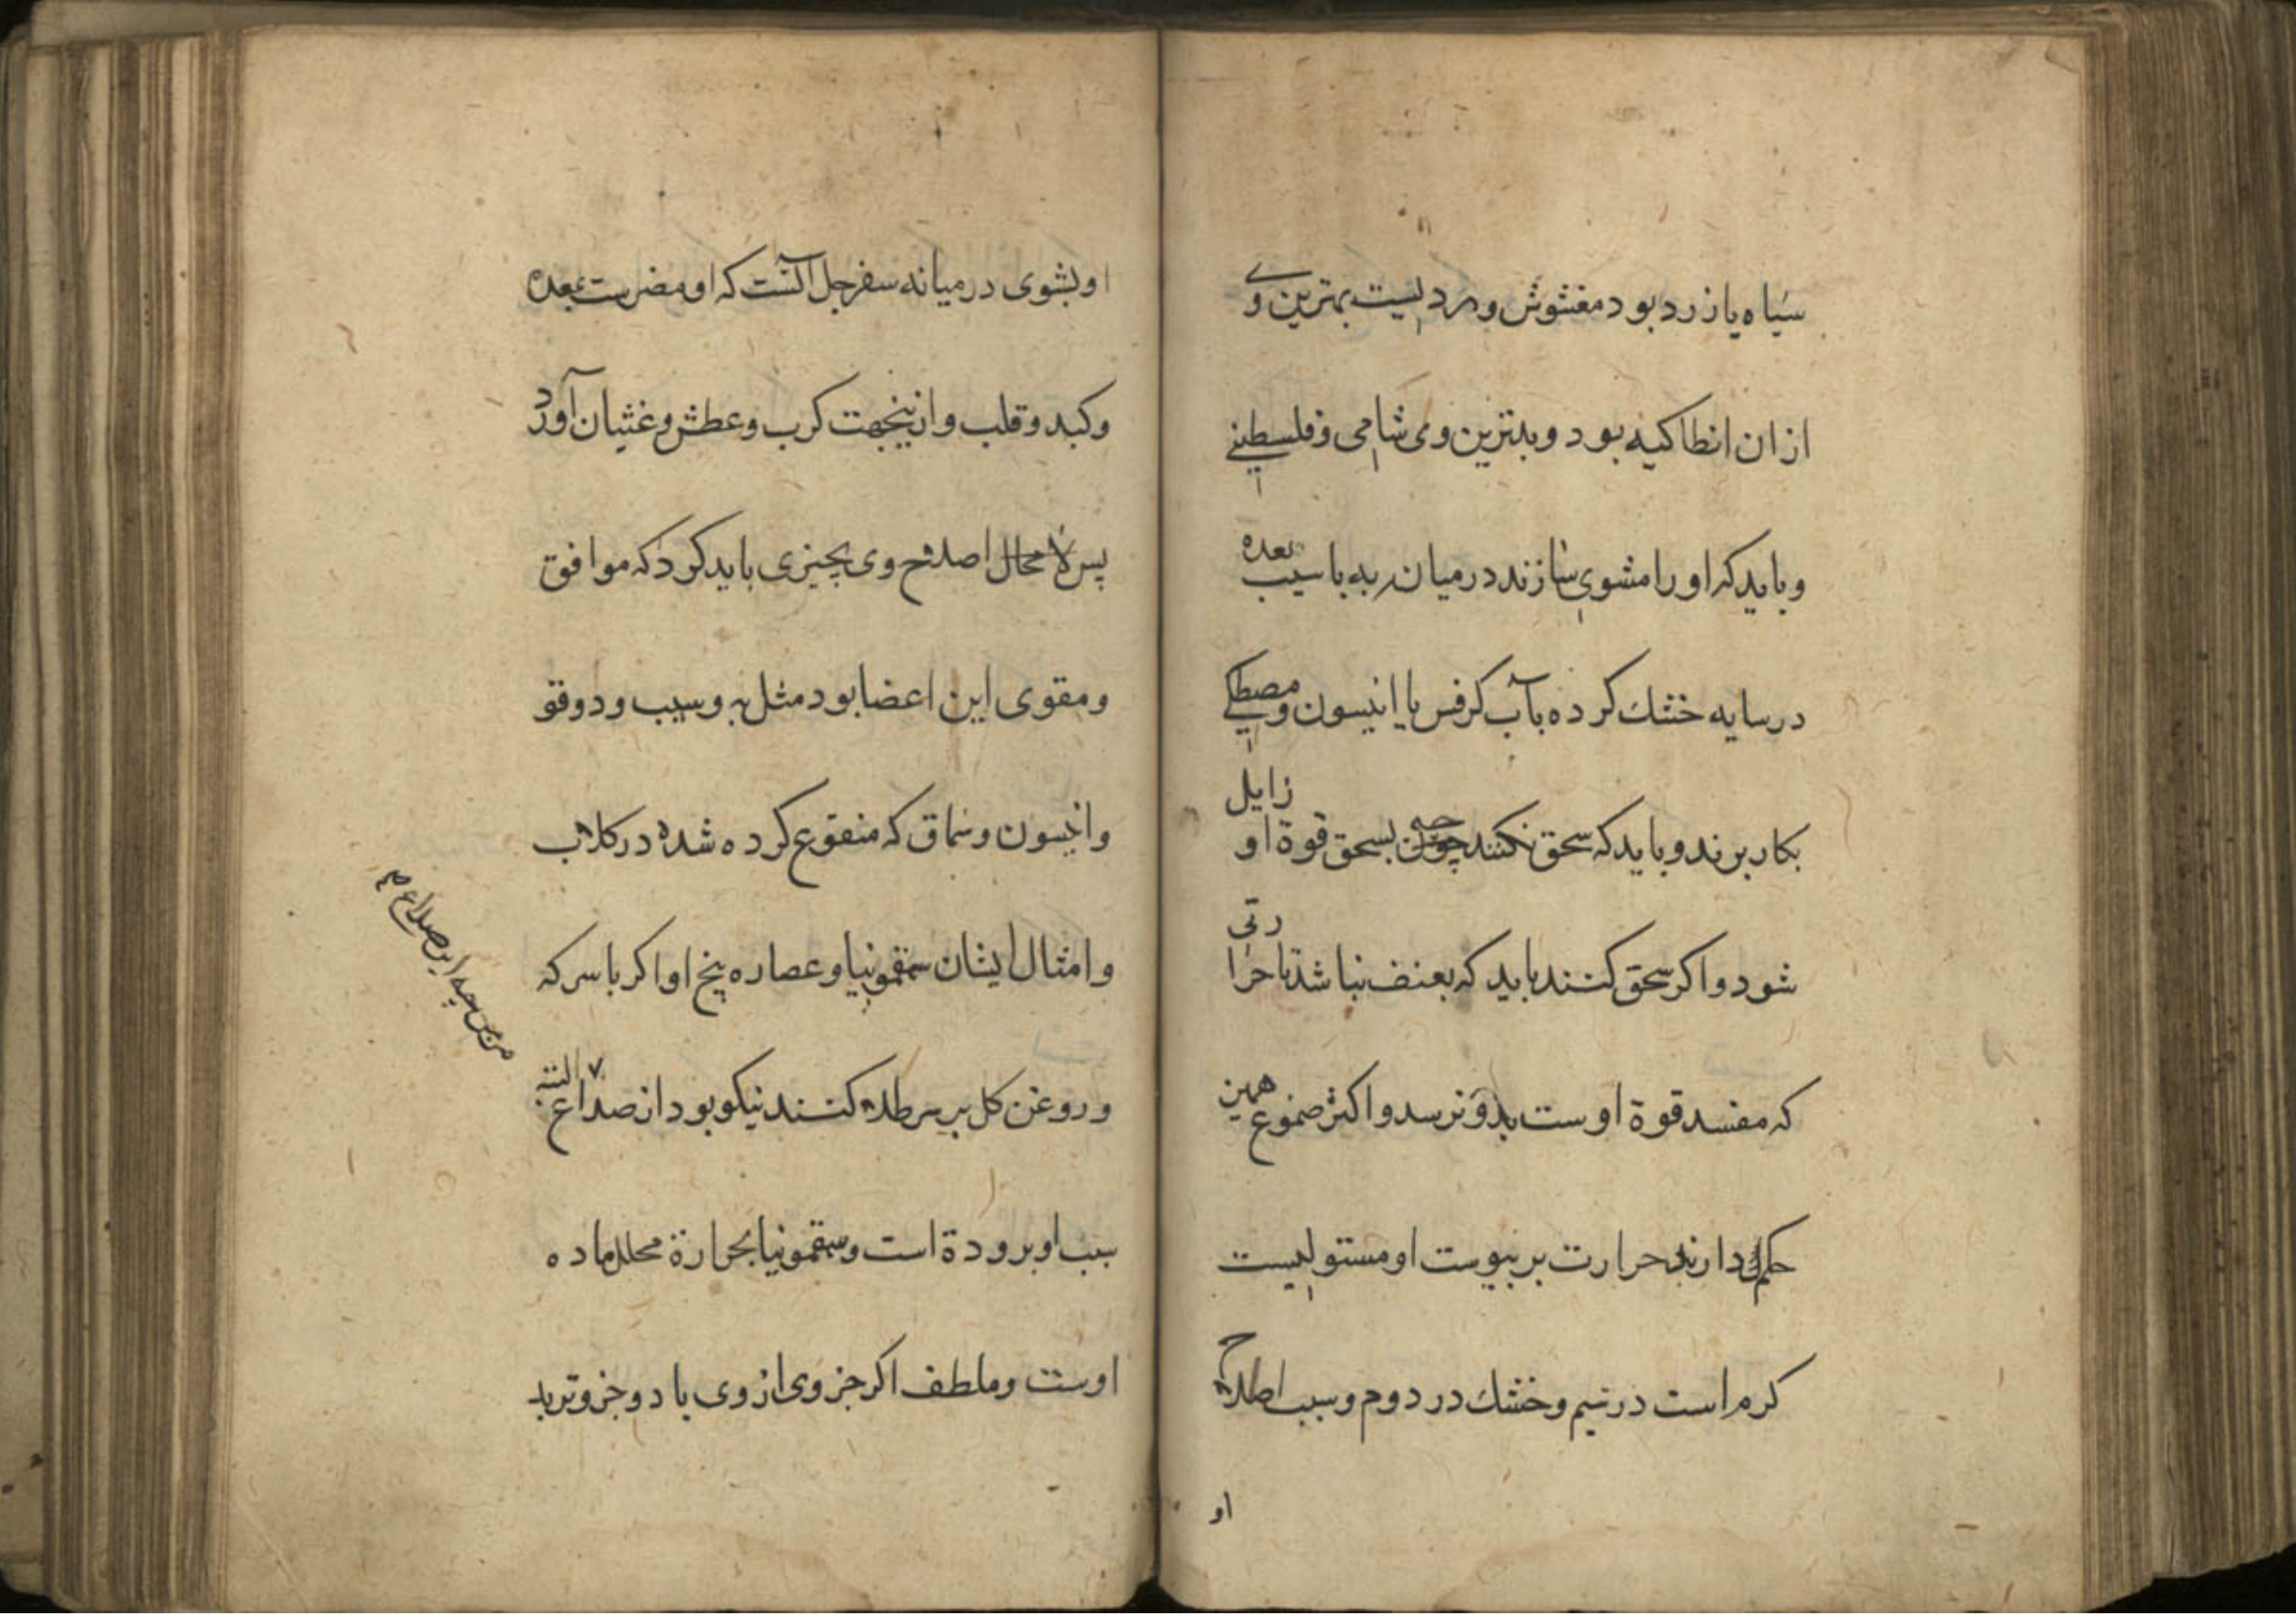 سیاه یا زرد بود مغشوش و مرد لیست بهترین وی
از ان انطاکیه بود و بدترین وی شامی و فلسطینی
و باید که او را مشوی سازند در میان به یا سیب بعده
در سایه خشك کرده بآب کرفس یا انیسون و مصطکی
بکار برند و باید که سحق نکنند چه بسحق قوة او زایل
شود و اکر سحق کنند باید که بعنف نباشد تا حرارتی
که مفسد قوة اوست بدو نرسد و اکثر صموغ همین
حکم دارند حرارت بر یبوست او مستولیست
کرم است در سیم و خشك در دوم و سبب اصلاح
او
او بشوی در میانه سفرجل آنست که او مضر ست بمعده
و کبد و قلب و ازینجهت کرب و عطش و غثیان آورد
پس لا محال اصلاح وی بچیزی باید کرد که موافق
و مقوی این اعضا بود مثل به و سیب و دوقو
و انیسون و سماق که منقوع کرده شده در کلاب
و امثال ایشان سقمونیا و عصاره بیخ او اکر با سرکه
و روغن کل بر سر طلا کنند نیکو بود از صداع البته
سبب او برودة است و سقمونیا بحرارة محلل ماده
اوست و ملطف اکر جزوی از وی با دو جزو تربد